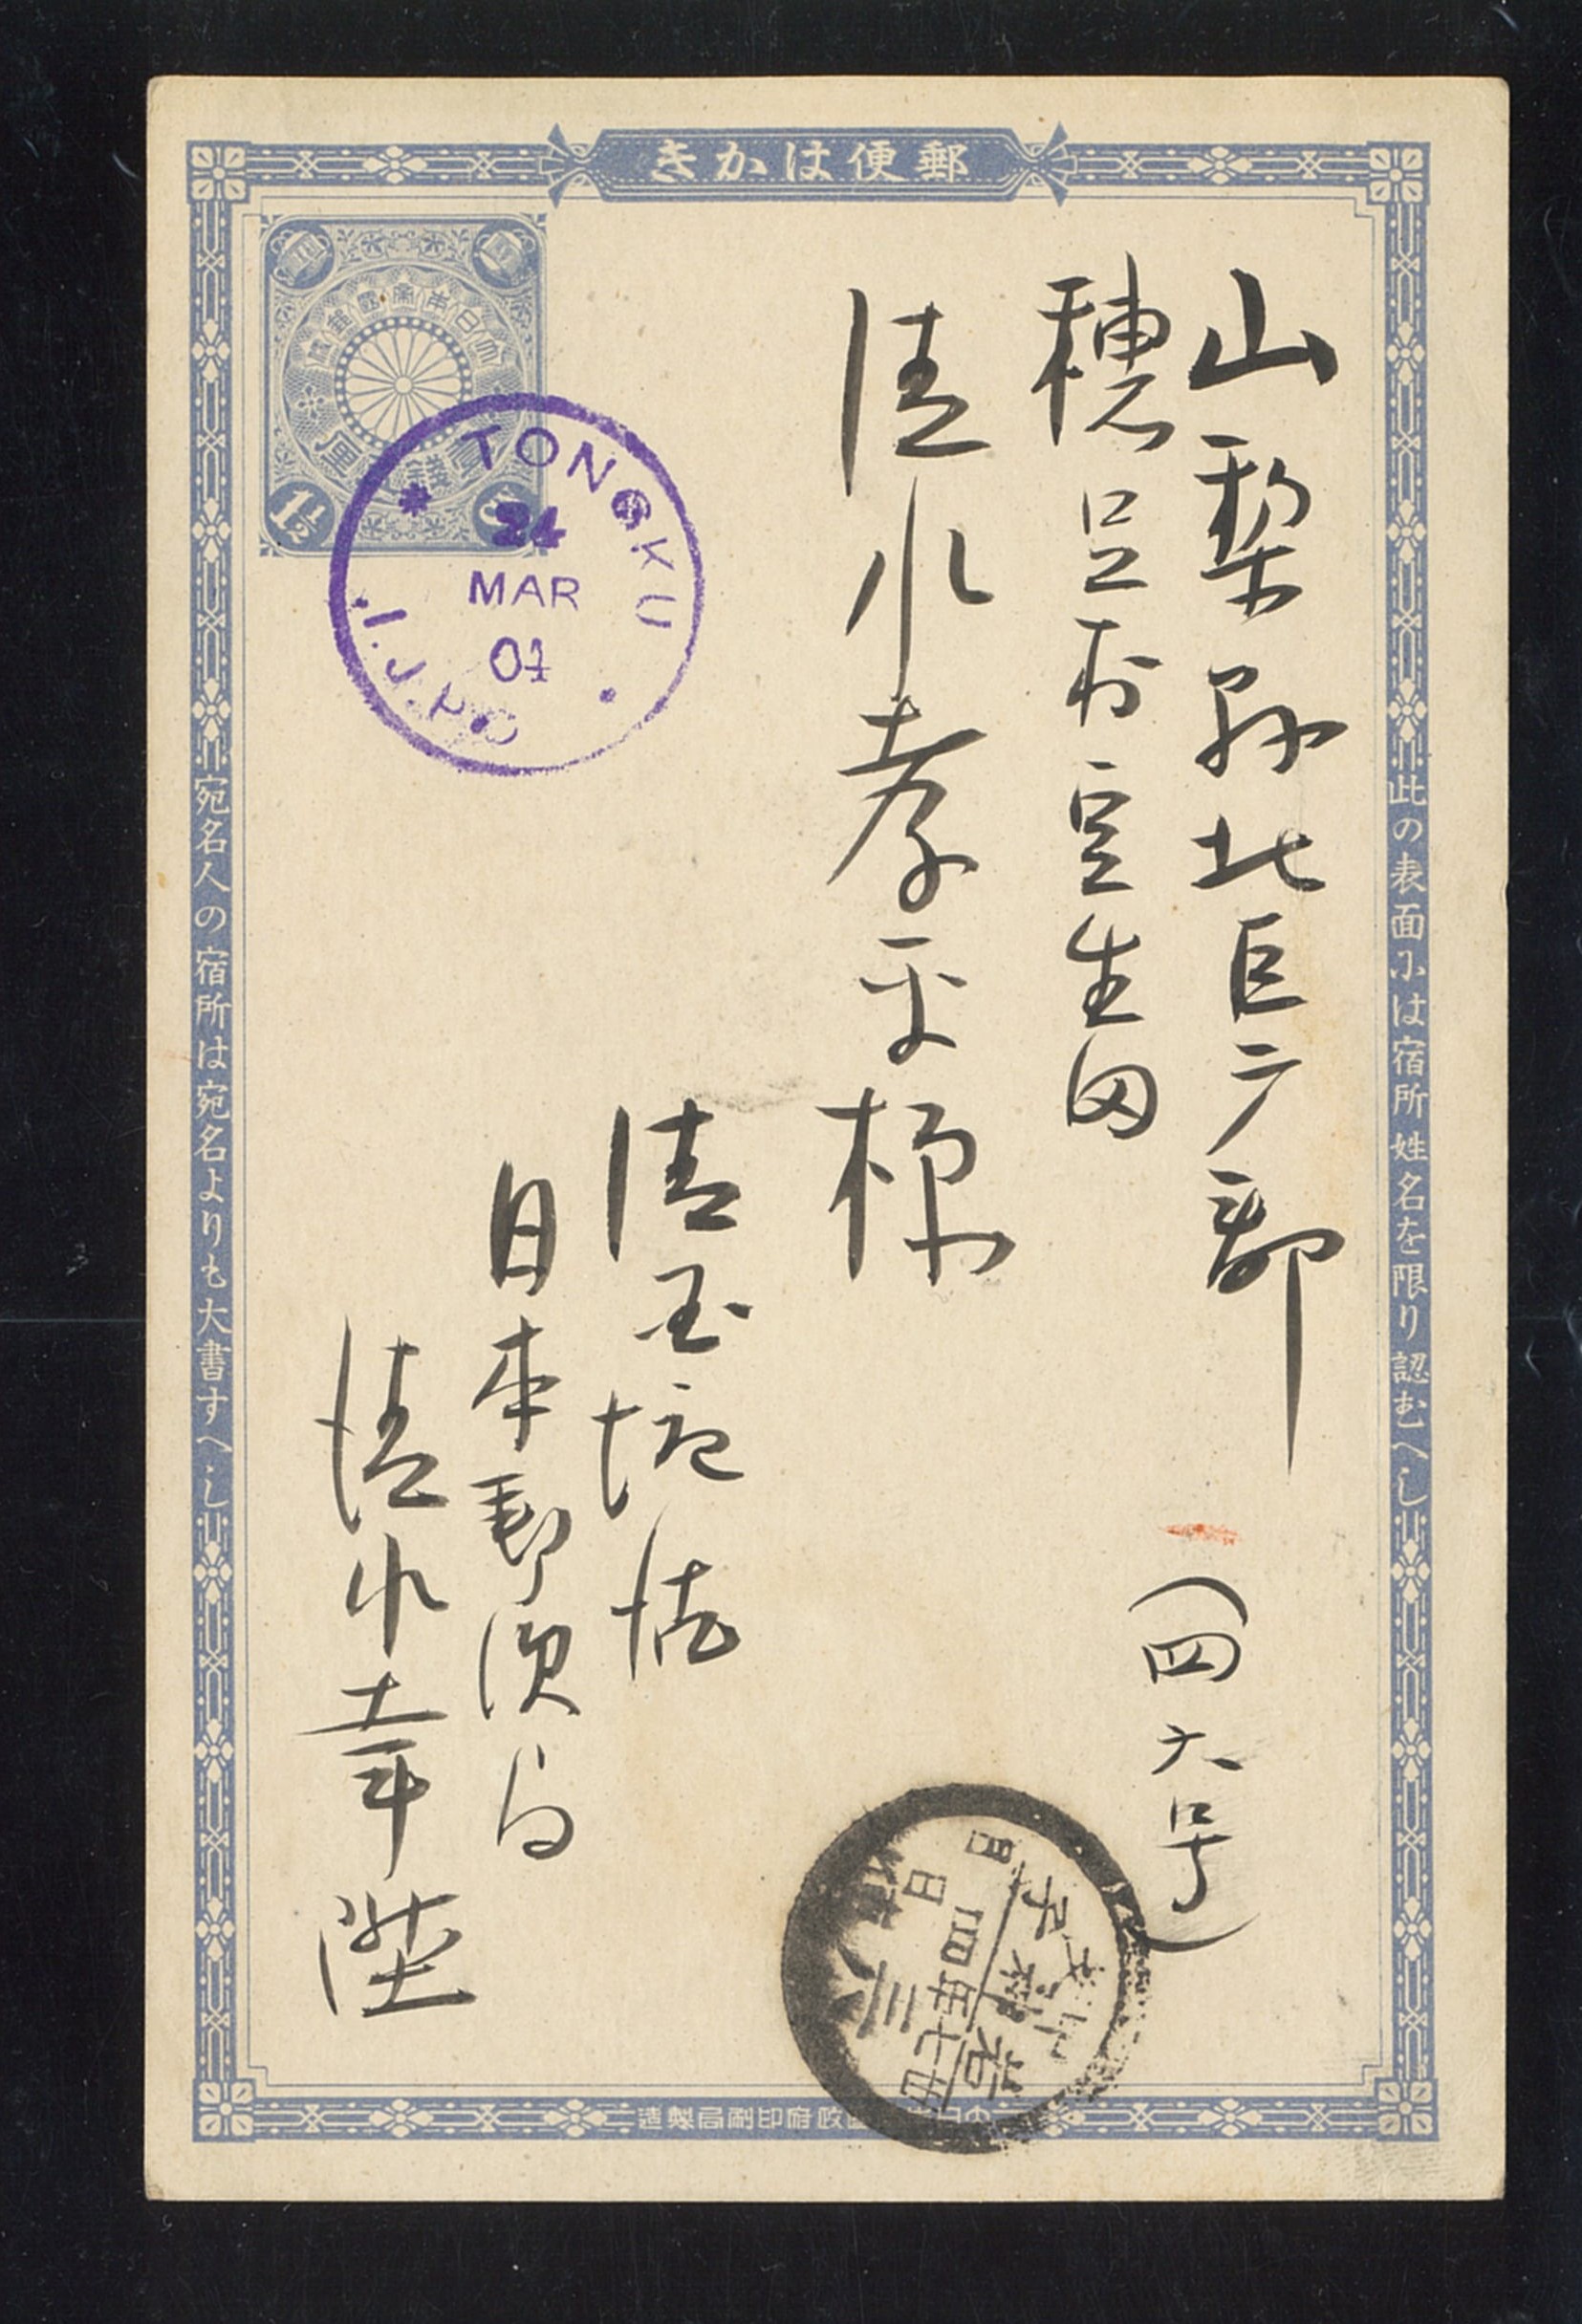 郵便はかき
此の表面には宿所姓名を限り認むへし
山梨縣北巨摩郡
穂足村豆生田
(四六号)
清水孝平様
清国塘沽
日本郵便局
清水幸
宛名人の宿所は宛名よりも大書すへし
大日本帝國郵便
壹錢五厘
1½
TONGKU
24
MAR
04
I.J.P.O